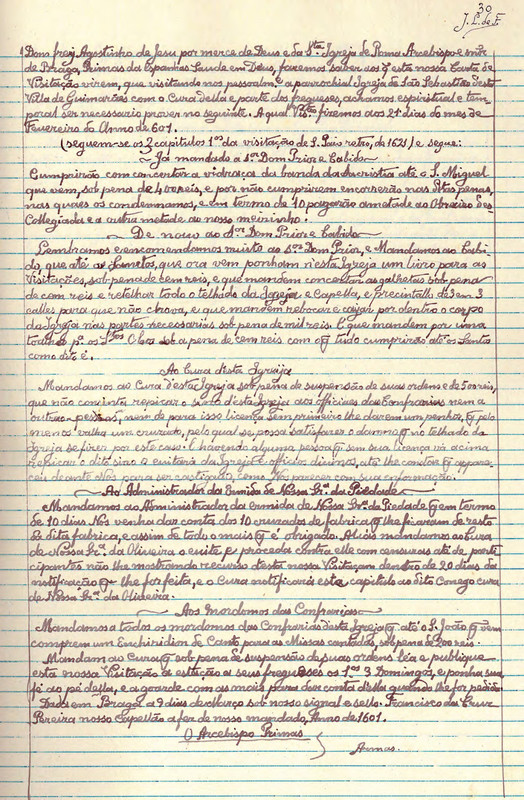 30
J. L. de F.
Dom frey Agostinho de Jesu por merce de Deus e da Sta Igreja de Roma Arcebispo e snõr
de Braga, Primas das Espanhas Saude em Deus, fazemos saber aos q̃ esta nossa Carta de
Visitação virem, que visitando nos pessoalm.te a parrochial Igreja de São Sebastião desta
Villa de Guimarães com o Cura della e parte dos freguezes, achamos espiritual e tem
poral ser necessario prover no seguinte. A qual Vtão fizemos aos 21 dias do mes de
Fevereiro do Anno de 601.
(seguem-se os 3 capitulos 1os da visitação de S. Paio retro, de 1621) e segue:
Já mandado a Sr Dom Prior e Cabido
Cumprirão com concertar a vidraça da banda da sacristia até o S. Miguel
que vem, sob pena de 400 reis, e por não cumprirem encorrerão nas ditas penas,
nas quaes os condemnamos, e em termo de 10 pagarão ametade ao Obreiro des
Collegiada e a outra metade ao nosso meirinho.
De novo ao Sor Dom Prior e Cabido
Lembramos e encomendamos muito ao Sor Dom Prior, e Mandamos ao Cabi-
do, que até os Sanctos, que ora vem ponham n'esta Igreja um livro para as
Visitações, sob pena de cem reis, e que mandem concertar as galhetas sob pena
de cem reis e retelhar todo o telhado da Igreja e Capella, e precintal-o de 3 em 3
calles para que não chova, e que mandem rebocar e caiar por dentro o corpo
da Igreja nas partes necessarias sob pena de mil reis. E que mandem por uma
toalha p.a os Stos Oleos sob a pena de cem reis com q̃ tudo cumprirão até os Santos
como dito é.
Ao Cura desta Igreija
Mandamos ao Cura d'esta Igreja sob pena de suspensão de suas ordens e de 500 reis,
que não consinta repicar o sino desta Igreja aos officiaes das Confrarias nem a
outras pessoas, nem dê para isso licença sem primeiro lhe darem um penhor, q̃ pelo
menos valha um cruzado, pelo qual se possa satisfazer o damno q̃ no telhado da
Igreja se fizer por este caso. E havendo alguma pessoa q̃ sem sua licença vá acima
repicar o dito sino o evitará da Igreja e officios divinos, até lhe constar q̃ appare-
ceu deante Nós para ser castigado, como Nós parecer com sua informação.
Ao Administrador da Ermida de Nossa Sr.a da Piedade
Mandamos ao Administrador da ermida de Nossa Sr.a da Piedade q̃ em termo
de 10 dias Nós venha dar conta dos 10 cruzados de fabrica q̃ lhe ficaram de resto
da dita fabrica, e assim de todo o mais q̃ é obrigado. Aliás mandamos ao Cura
de Nossa Sr.a da Oliveira o evite e proceda contra elle com censuras até de parti-
cipantes não lhe mostrando recurso desta nossa Visitaçam dentro de 20 dias da
notificação q̃ lhe for feita, e o Cura notificará este capitulo ao dito Conego cura
de Nossa Sr.a da Oliveira.
Aos Mordomos das Confrarias
Mandamos a todos os mordomos das Confrarias desta Igreja q̃ até o S. João q̃ vem
comprem um Enchiridion de Canto para as Missas cantadas, sob pena de 200 reis.
Mandam ao Cura q̃ sob pena de suspensão de suas ordens lêa e publique
esta nossa Visitação á estação a seus freguezes os 1os 3 Domingos, e ponha sua
fé ao pé della, e a guarde com as mais para dar conta della quando lhe for pedida
Dada em Braga a 9 dias de Março sob nosso signal e sello. Francisco da Cruz
Pereira nosso Capellão a fez de nosso mandado, Anno de 1601.
O Arcebispo Primas
Armas.